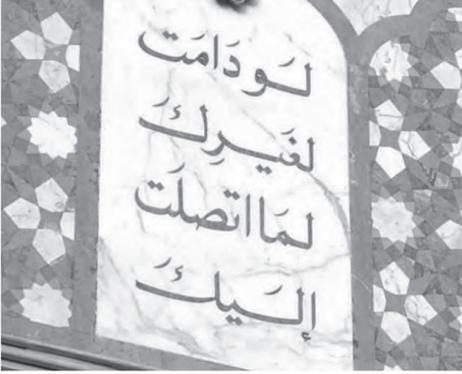 لَو دَامَت
لغَيرِكَ
لمَا اتصلَت
إليكَ